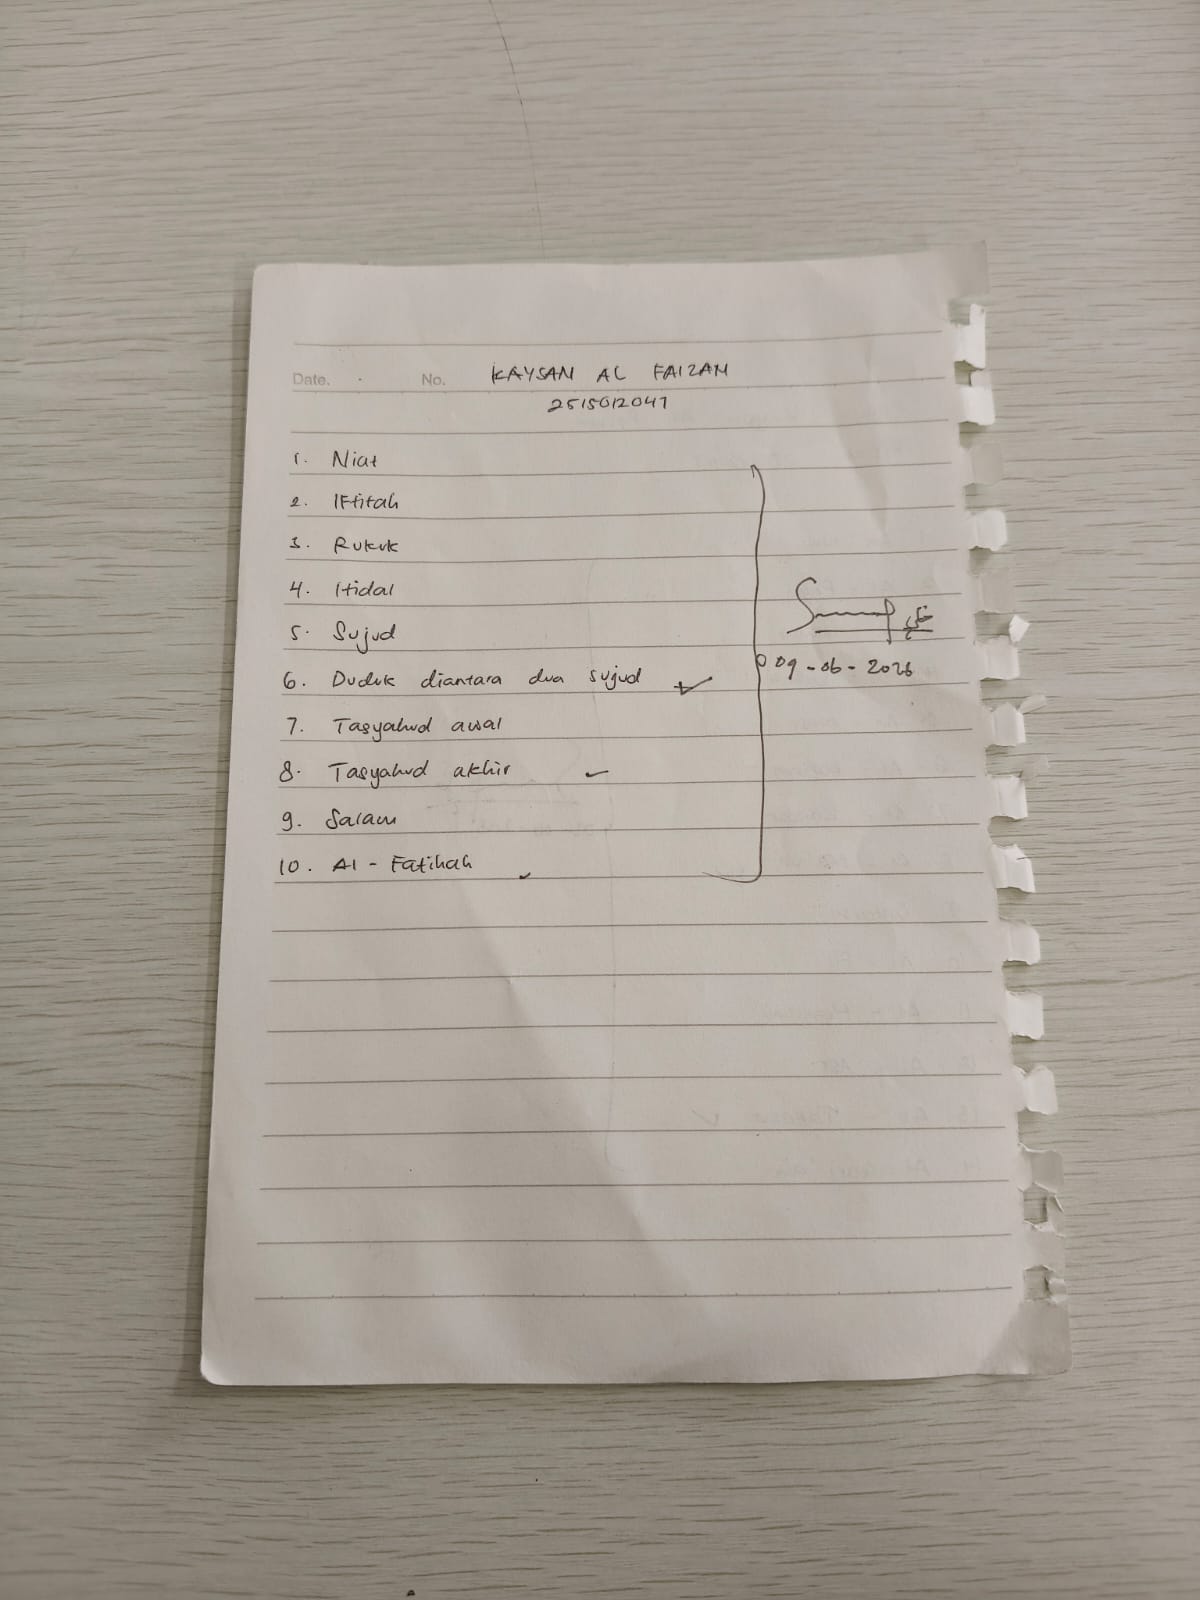 Date. No. KAYSAN AL FAIZAN
2515012047
1. Niat
2. Iftitah
3. Rukuk
4. Itidal
5. Sujud
6. Duduk diantara dua sujud ✓
7. Tasyahud awal
8. Tasyahud akhir ✓
9. Salam
10. Al - Fatihah ✓
09-06-2026